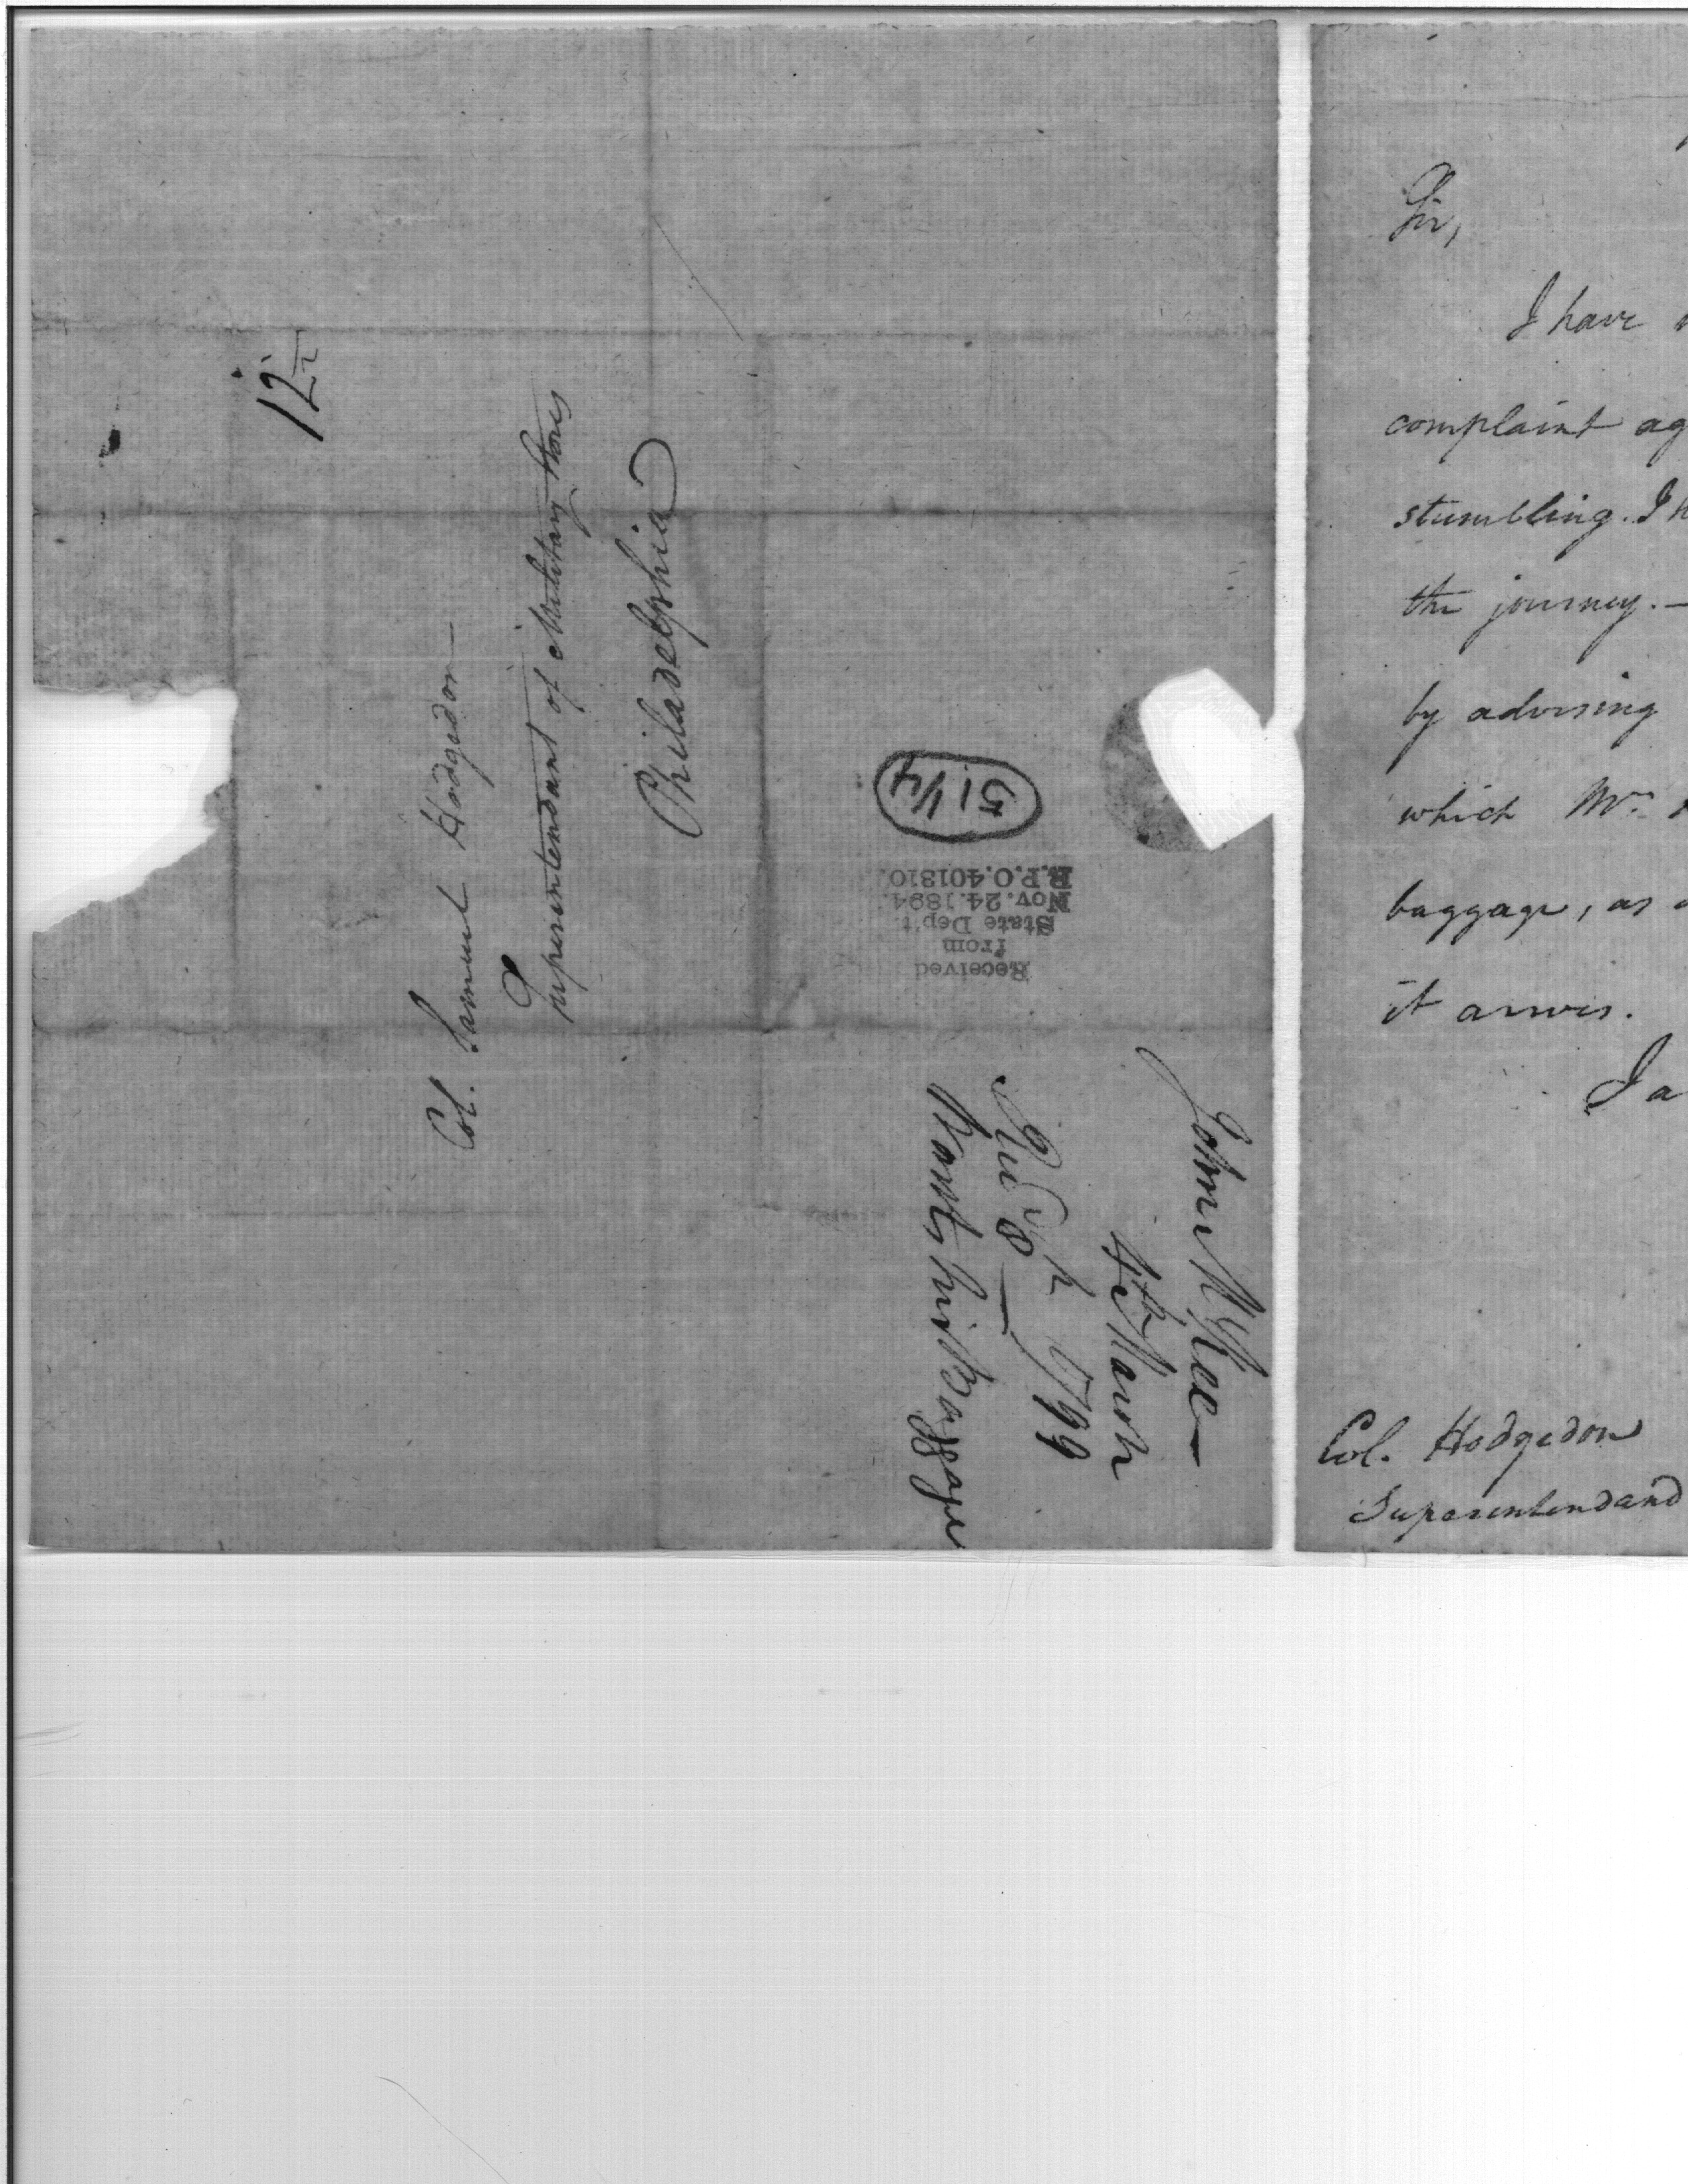 12½
Col. Samuel Hodgedon—
Superintendant of Military Stores
Philadelphia
51/14
Received
from
State Dep't.
Nov. 24. 1894.
R.P.O. 401810.
John McKee—
4th March
1799
8th—
Wants his Baggage
Sir,
I have
complaint ag
stumbling. I h
the journey.—
by advising
which Mr.
baggage, as
it arrives.
I a
Col. Hodgedon
Superintendand